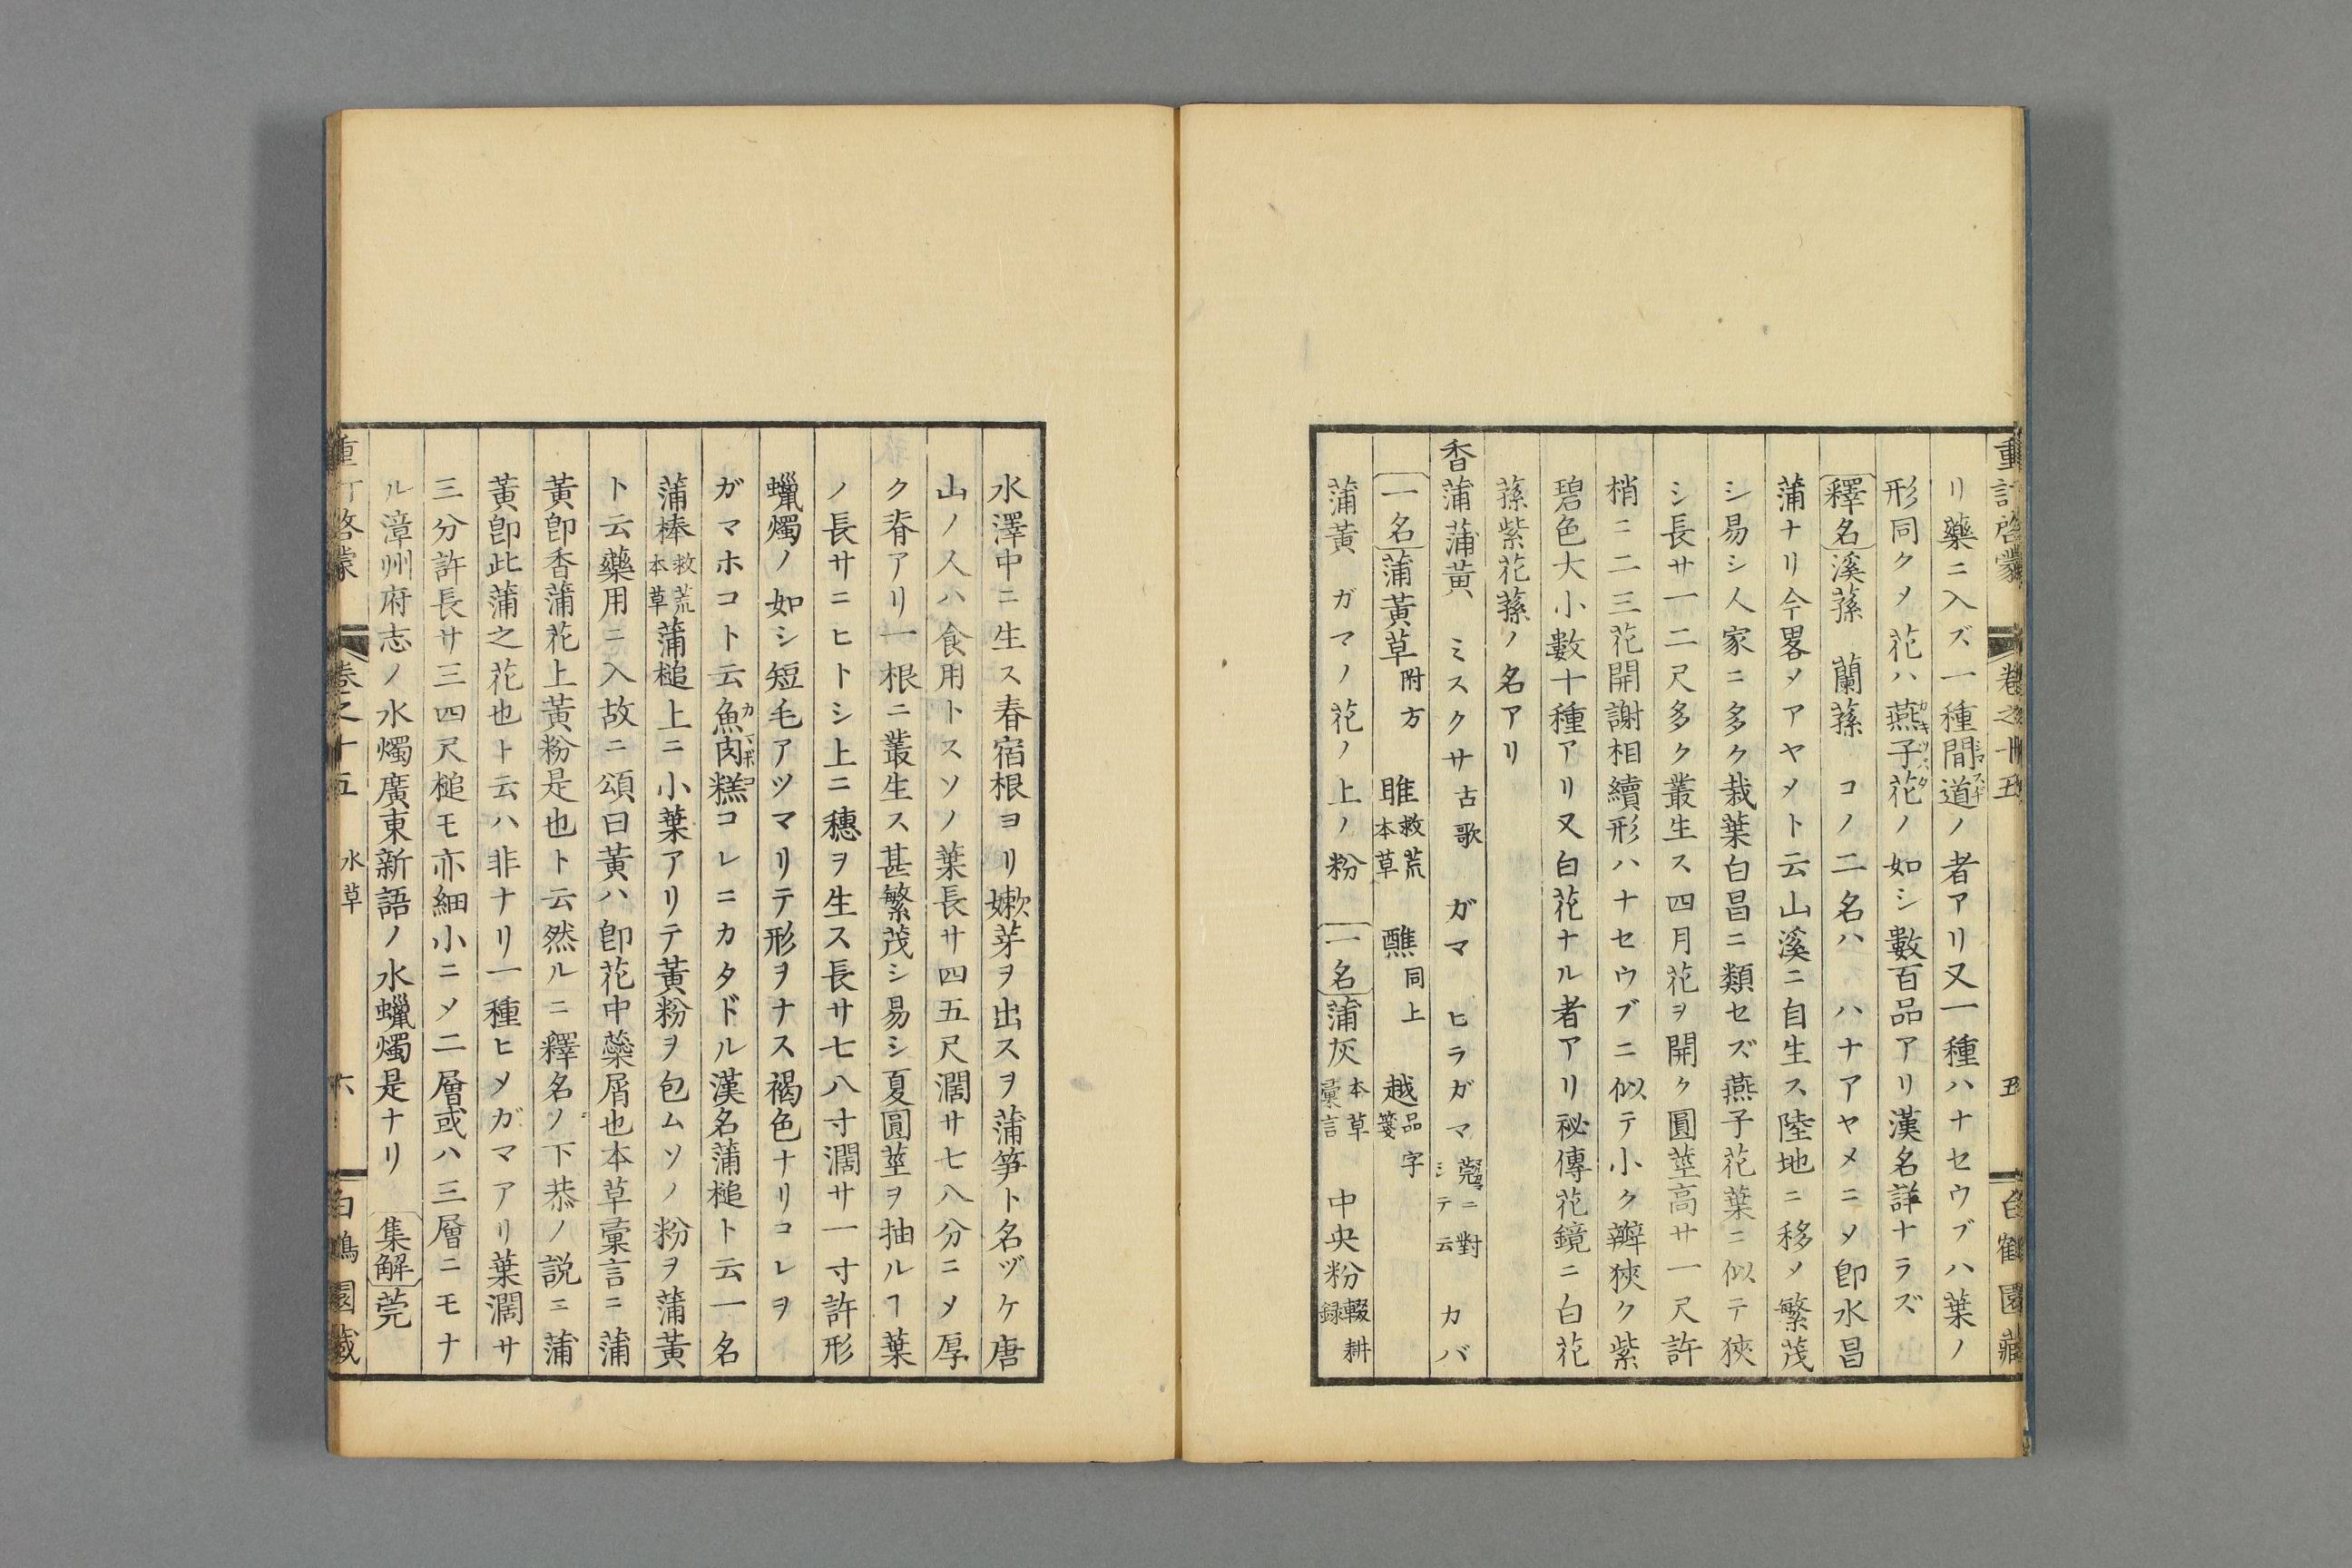 重訂啓蒙 卷之十五 五 白鶴園藏
リ藥ニ入ズ一種間道ノ者アリ又一種ハナセウブハ葉ノ
形同クメ花ハ燕子花カキツバタノ如シ數百品アリ漢名詳ナラズ
釋名溪蓀 蘭蓀 コノ二名ハ ハナアヤメニメ卽水昌
蒲ナリ今畧メアヤメト云山溪ニ自生ス陸地ニ移メ繁茂
シ易シ人家ニ多ク栽葉白昌ニ類セズ燕子花葉ニ似テ狹
シ長サ一二尺多ク叢生ス四月花ヲ開ク圓莖高サ一尺許
梢ニ二三花開謝相續形ハナセウブニ似テ小ク瓣狹ク紫
碧色大小數十種アリ又白花ナル者アリ祕傳花鏡ニ白花
蓀紫花蓀ノ名アリ
香蒲蒲黃 ミスクサ古歌 ガマ ヒラガマ莞ニ對シテ云 カバ
一名蒲黃草附方 睢救荒本草 醮同上 越品字箋
蒲黃 ガマノ花ノ上ノ粉 一名蒲灰本草彙言 中央粉輟耕録
水澤中ニ生ス春宿根ヨリ嫩芽ヲ出スヲ蒲笋ト名ヅケ唐
山ノ人ハ食用トスソノ葉長サ四五尺濶サ七八分ニメ厚
ク脊アリ一根ニ叢生ス甚繁茂シ易シ夏圓莖ヲ抽ルヿ葉
ノ長サニヒトシ上ニ穗ヲ生ス長サ七八寸濶サ一寸許形
蠟燭ノ如シ短毛アツマリテ形ヲナス褐色ナリコレヲ
ガマホコト云魚肉糕カマボココレニカタドル漢名蒲槌ト云一名
蒲棒救荒本草蒲槌上ニ小葉アリテ黃粉ヲ包ムソノ粉ヲ蒲黃
ト云藥用ニ入故ニ頌曰黃ハ卽花中蘂屑也本草彙言ニ蒲
黃卽香蒲花上黃粉是也ト云然ルニ釋名ノ下恭ノ説ニ蒲
黃卽此蒲之花也ト云ハ非ナリ一種ヒメガマアリ葉濶サ
三分許長サ三四尺槌モ亦細小ニメ二層或ハ三層ニモナ
ル漳州府志ノ水燭廣東新語ノ水蠟燭是ナリ 集解莞
重訂啓蒙 卷之十五 水草 六 白鶴園藏